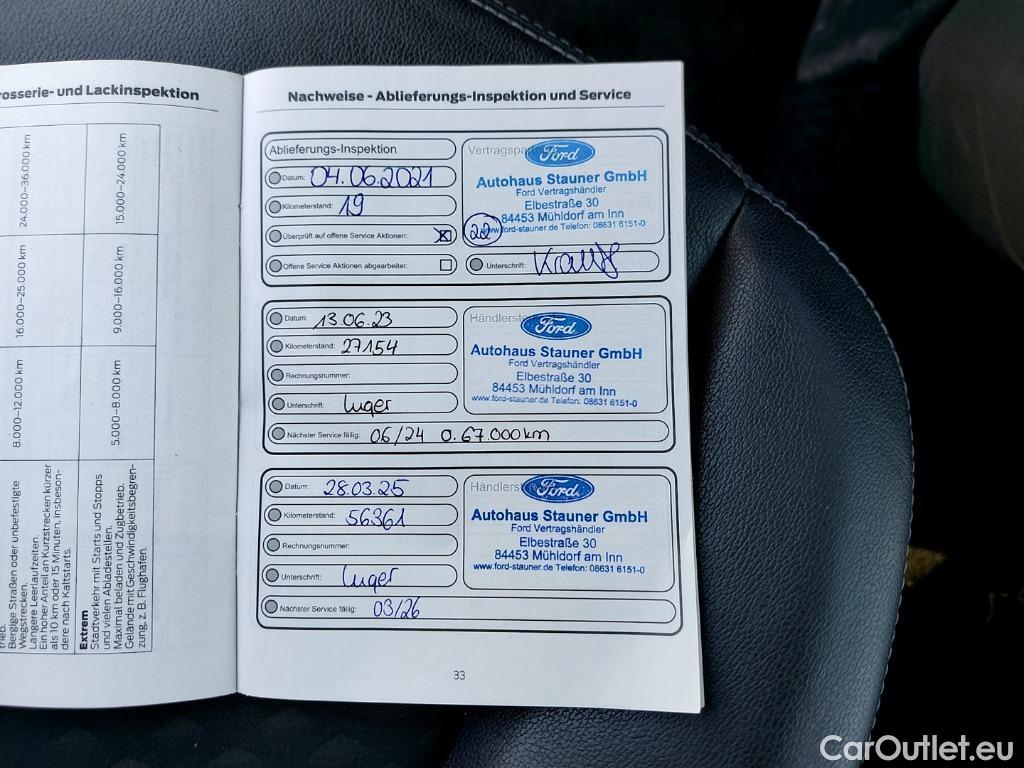 rosserie- und Lackinspektion
24.000–36.000 km
15.000–24.000 km
16.000–25.000 km
9.000–16.000 km
8.000–12.000 km
5.000–8.000 km
trieb.
Bergige Straßen oder unbefestigte
Wegstrecken.
Längere Leerlaufzeiten.
Ein hoher Anteil an Kurzstrecken kürzer
als 10 km oder 15 Minuten, insbeson-
dere nach Kaltstarts.
Extrem
Stadtverkehr mit Starts und Stopps
und vielen Abladestellen.
Maximal beladen und Zugbetrieb.
Gelände mit Geschwindigkeitsbegren-
zung, z. B. Flughäfen.
Nachweise - Ablieferungs-Inspektion und Service
Ablieferungs-Inspektion
Datum: 04.06.2021
Kilometerstand: 19
Überprüft auf offene Service Aktionen:
Offene Service Aktionen abgearbeitet:
Vertragspa
Ford
Autohaus Stauner GmbH
Ford Vertragshändler
Elbestraße 30
84453 Mühldorf am Inn
www.ford-stauner.de Telefon: 08631 6151-0
22
Unterschrift:
Datum: 13.06.23
Kilometerstand: 27154
Rechnungsnummer:
Unterschrift: Luger
Händlerste
Ford
Autohaus Stauner GmbH
Ford Vertragshändler
Elbestraße 30
84453 Mühldorf am Inn
www.ford-stauner.de Telefon: 08631 6151-0
Nächster Service fällig: 06/24 o. 67.000km
Datum: 28.03.25
Kilometerstand: 56361
Rechnungsnummer:
Unterschrift: Luger
Händlerst
Ford
Autohaus Stauner GmbH
Ford Vertragshändler
Elbestraße 30
84453 Mühldorf am Inn
www.ford-stauner.de Telefon: 08631 6151-0
Nächster Service fällig: 03/26
33
CarOutlet.eu